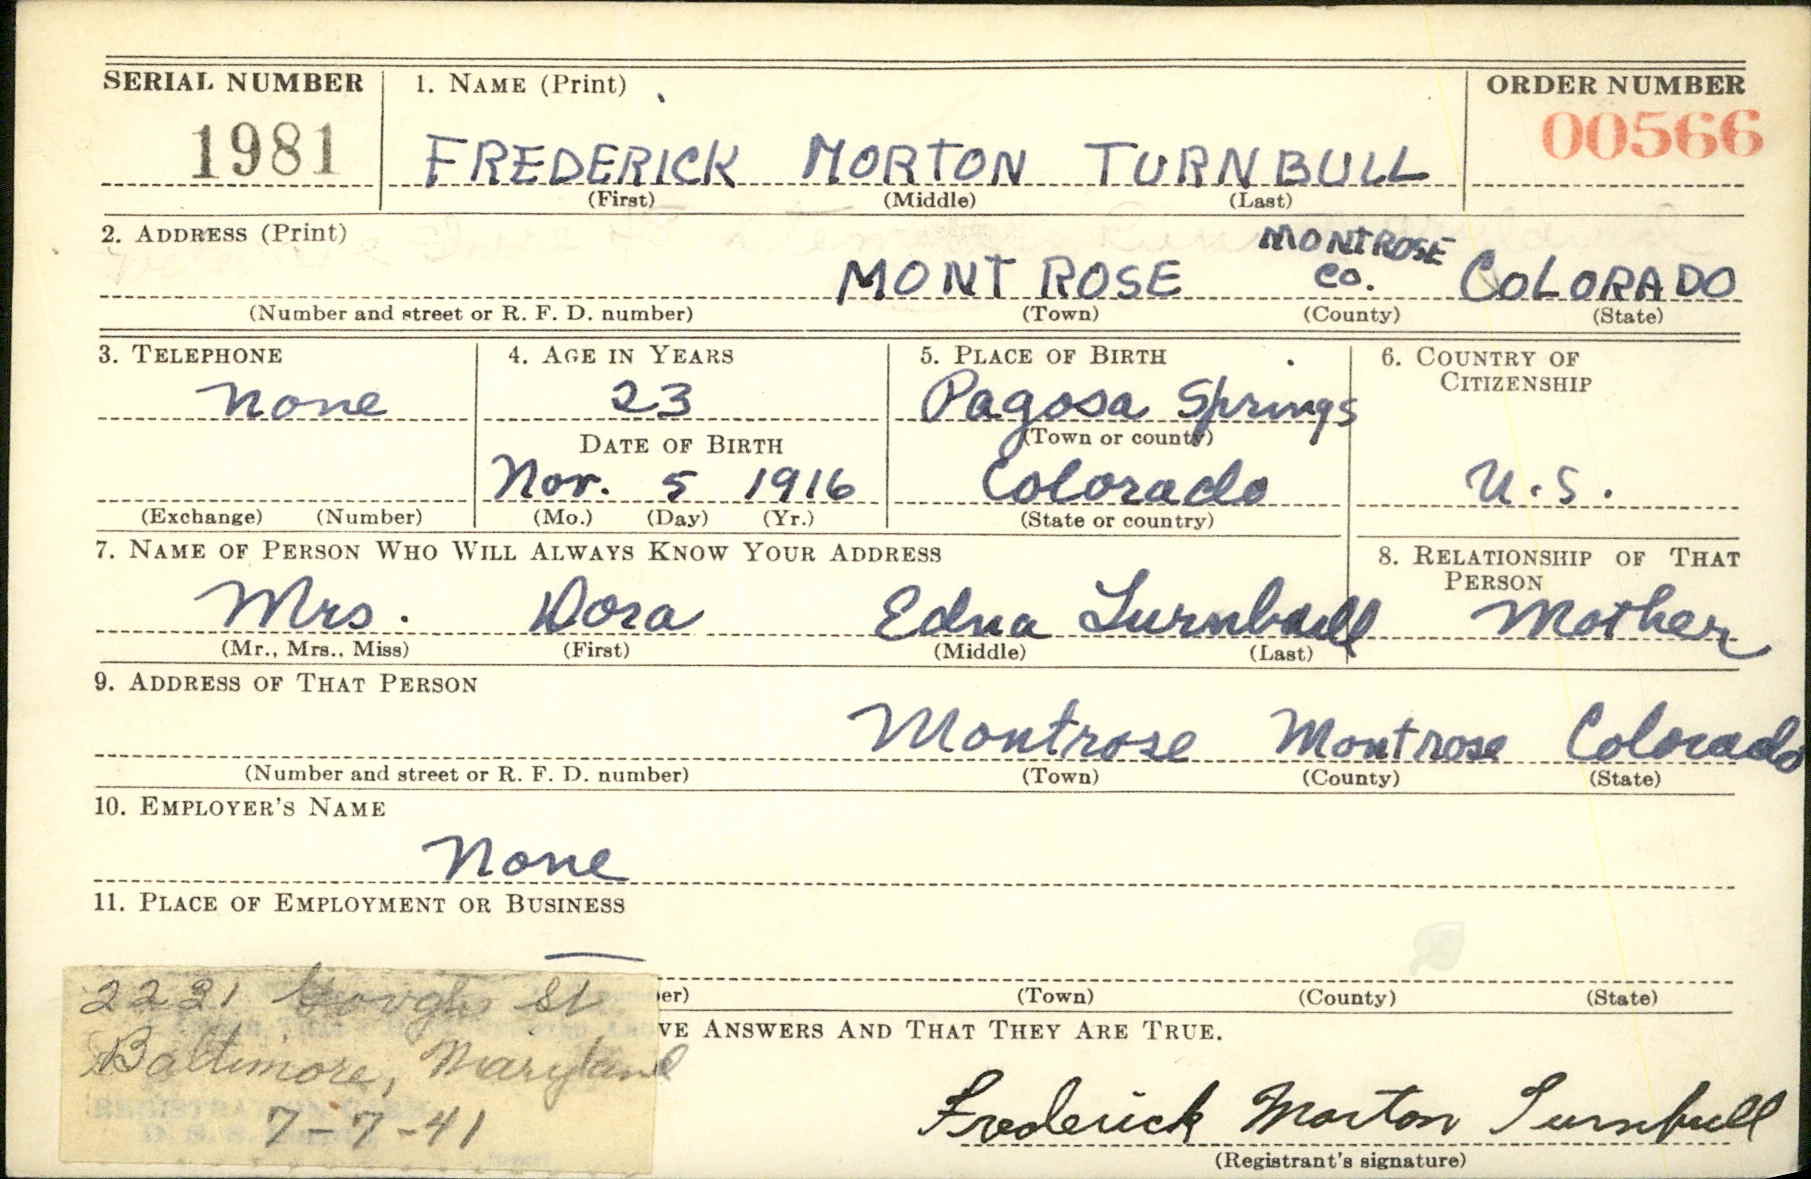 SERIAL NUMBER 1. NAME (Print) ORDER NUMBER
1981 FREDERICK MORTON TURNBULL 00566
(First) (Middle) (Last)
2. ADDRESS (Print)
MONTROSE MONTROSE CO. COLORADO
(Number and street or R. F. D. number) (Town) (County) (State)
3. TELEPHONE 4. AGE IN YEARS 5. PLACE OF BIRTH 6. COUNTRY OF
CITIZENSHIP
None 23 Pagosa Springs
DATE OF BIRTH (Town or county)
Nov. 5 1916 Colorado U.S.
(Exchange) (Number) (Mo.) (Day) (Yr.) (State or country)
7. NAME OF PERSON WHO WILL ALWAYS KNOW YOUR ADDRESS 8. RELATIONSHIP OF THAT
PERSON
Mrs. Dora Edna Turnbull Mother
(Mr., Mrs., Miss) (First) (Middle) (Last)
9. ADDRESS OF THAT PERSON
Montrose Montrose Colorado
(Number and street or R. F. D. number) (Town) (County) (State)
10. EMPLOYER'S NAME
None
11. PLACE OF EMPLOYMENT OR BUSINESS
2221 Gough St.
er) (Town) (County) (State)
VE ANSWERS AND THAT THEY ARE TRUE.
Baltimore, Maryland
7-7-41
Frederick Morton Turnbull
(Registrant's signature)